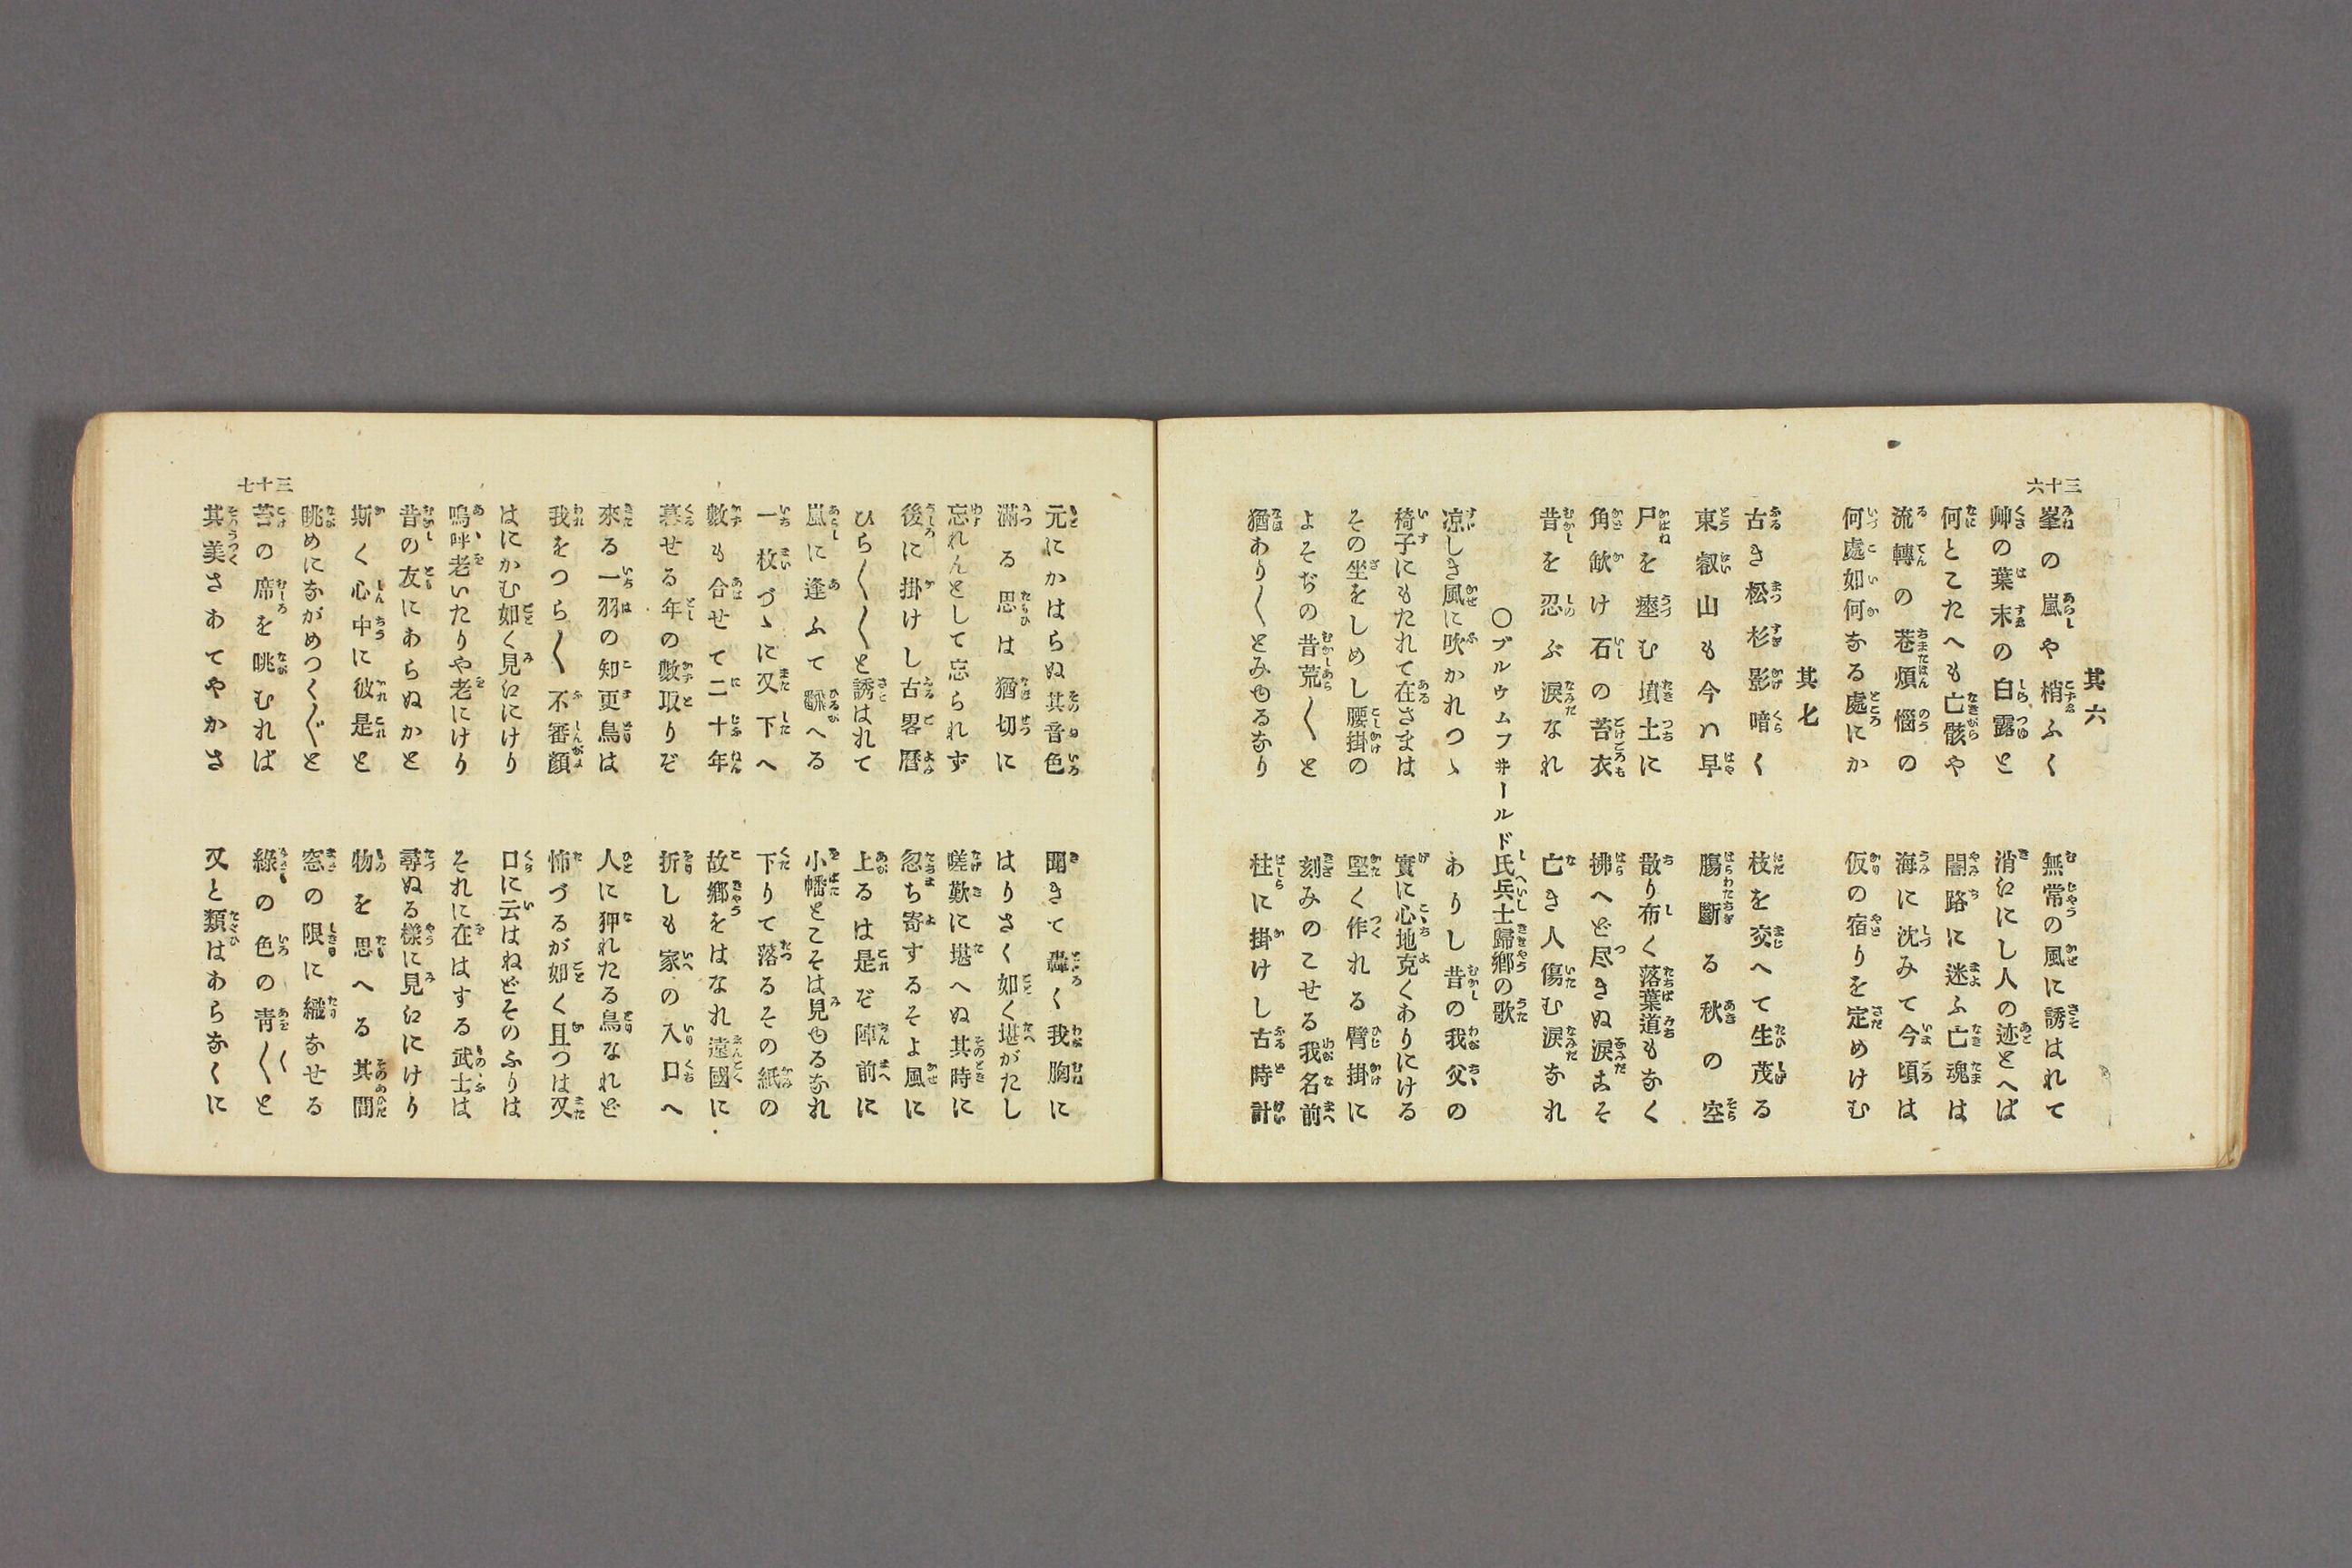 三十六
其六
峯の嵐や梢ふく　無常の風に誘はれて
艸の葉末の白露と　消江にし人の迹とへば
何とこたへも亡骸や　闇路に迷ふ亡魂は
流轉の巷煩惱の　海に沈みて今頃は
何處如何なる處にか　仮の宿りを定めけむ
其七
古き松杉影暗く　枝を交へて生茂る
東叡山も今ハ早　膓斷る秋の空
尸を瘞む墳土に　散り布く落葉道もなく
角缺け石の苔衣　拂へど尽きぬ涙こそ
昔を忍ぶ淚なれ　亡き人傷む淚なれ
〇ブルウムフ井ールド氏兵士歸郷の歌
凉しき風に吹かれつゝ　ありし昔の我父の
椅子にもたれて在さまは　實に心地克くありにける
その坐をしめし腰掛の　堅く作れる臂掛に
よそぢの昔荒〱と　刻みのこせる我名前
猶あり〱とみゆるなり　柱に掛けし古時計
三十七
元にかはらぬ其音色　聞きて轟く我胸に
滿る思は猶切に　はりさく如く堪がたし
忘れんとして忘られず　嗟歎に堪へぬ其時に
後に掛けし古畧曆　忽ち寄するそよ風に
ひら〱〱と誘はれて　上るは是ぞ陣前に
嵐に逢ふて飜へる　小幡とこそは見ゆるなれ
一枚づゝに又下へ　下りて落るその紙の
數も合せて二十年　故郷をはなれ遠國に
暮せる年の數取りぞ　折しも家の入口へ
來る一羽の知更鳥は　人に狎れたる鳥なれど
我をつら〱不審顔　怖づるが如く且つは又
はにかむ如く見江にけり　口に云はねどそのふりは
嗚呼老いたりや老にけり　それに在はする武士は
昔の友にあらぬかと　尋ぬる樣に見江にけり
斯く心中に彼是と　物を思へる其間
眺めにながめつく〲と　窓の限に織なせる
苔の席を眺むれば　綠の色の靑〱と
其美さあてやかさ　又と類はあらなくに